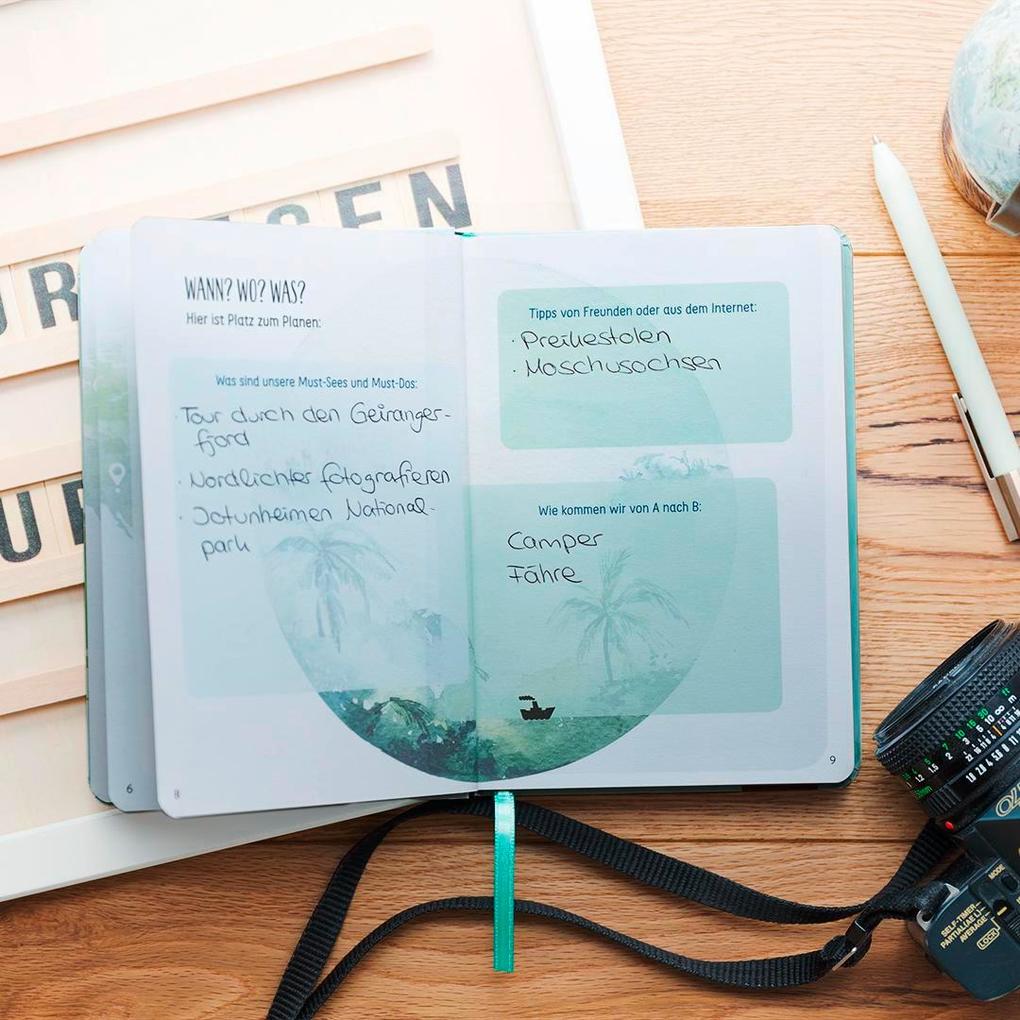 WANN? WO? WAS?
Hier ist Platz zum Planen:
Was sind unsere Must-Sees und Must-Dos:
· Tour durch den Geiranger-
fjord
· Nordlichter fotografieren
· Jotunheimen National-
park
6
8
Tipps von Freunden oder aus dem Internet:
· Preikestolen
· Moschusochsen
Wie kommen wir von A nach B:
Camper
Fähre
9
SELF-TIMER
PARTIAL/AE L
AVERAGE
LOCK
MODE